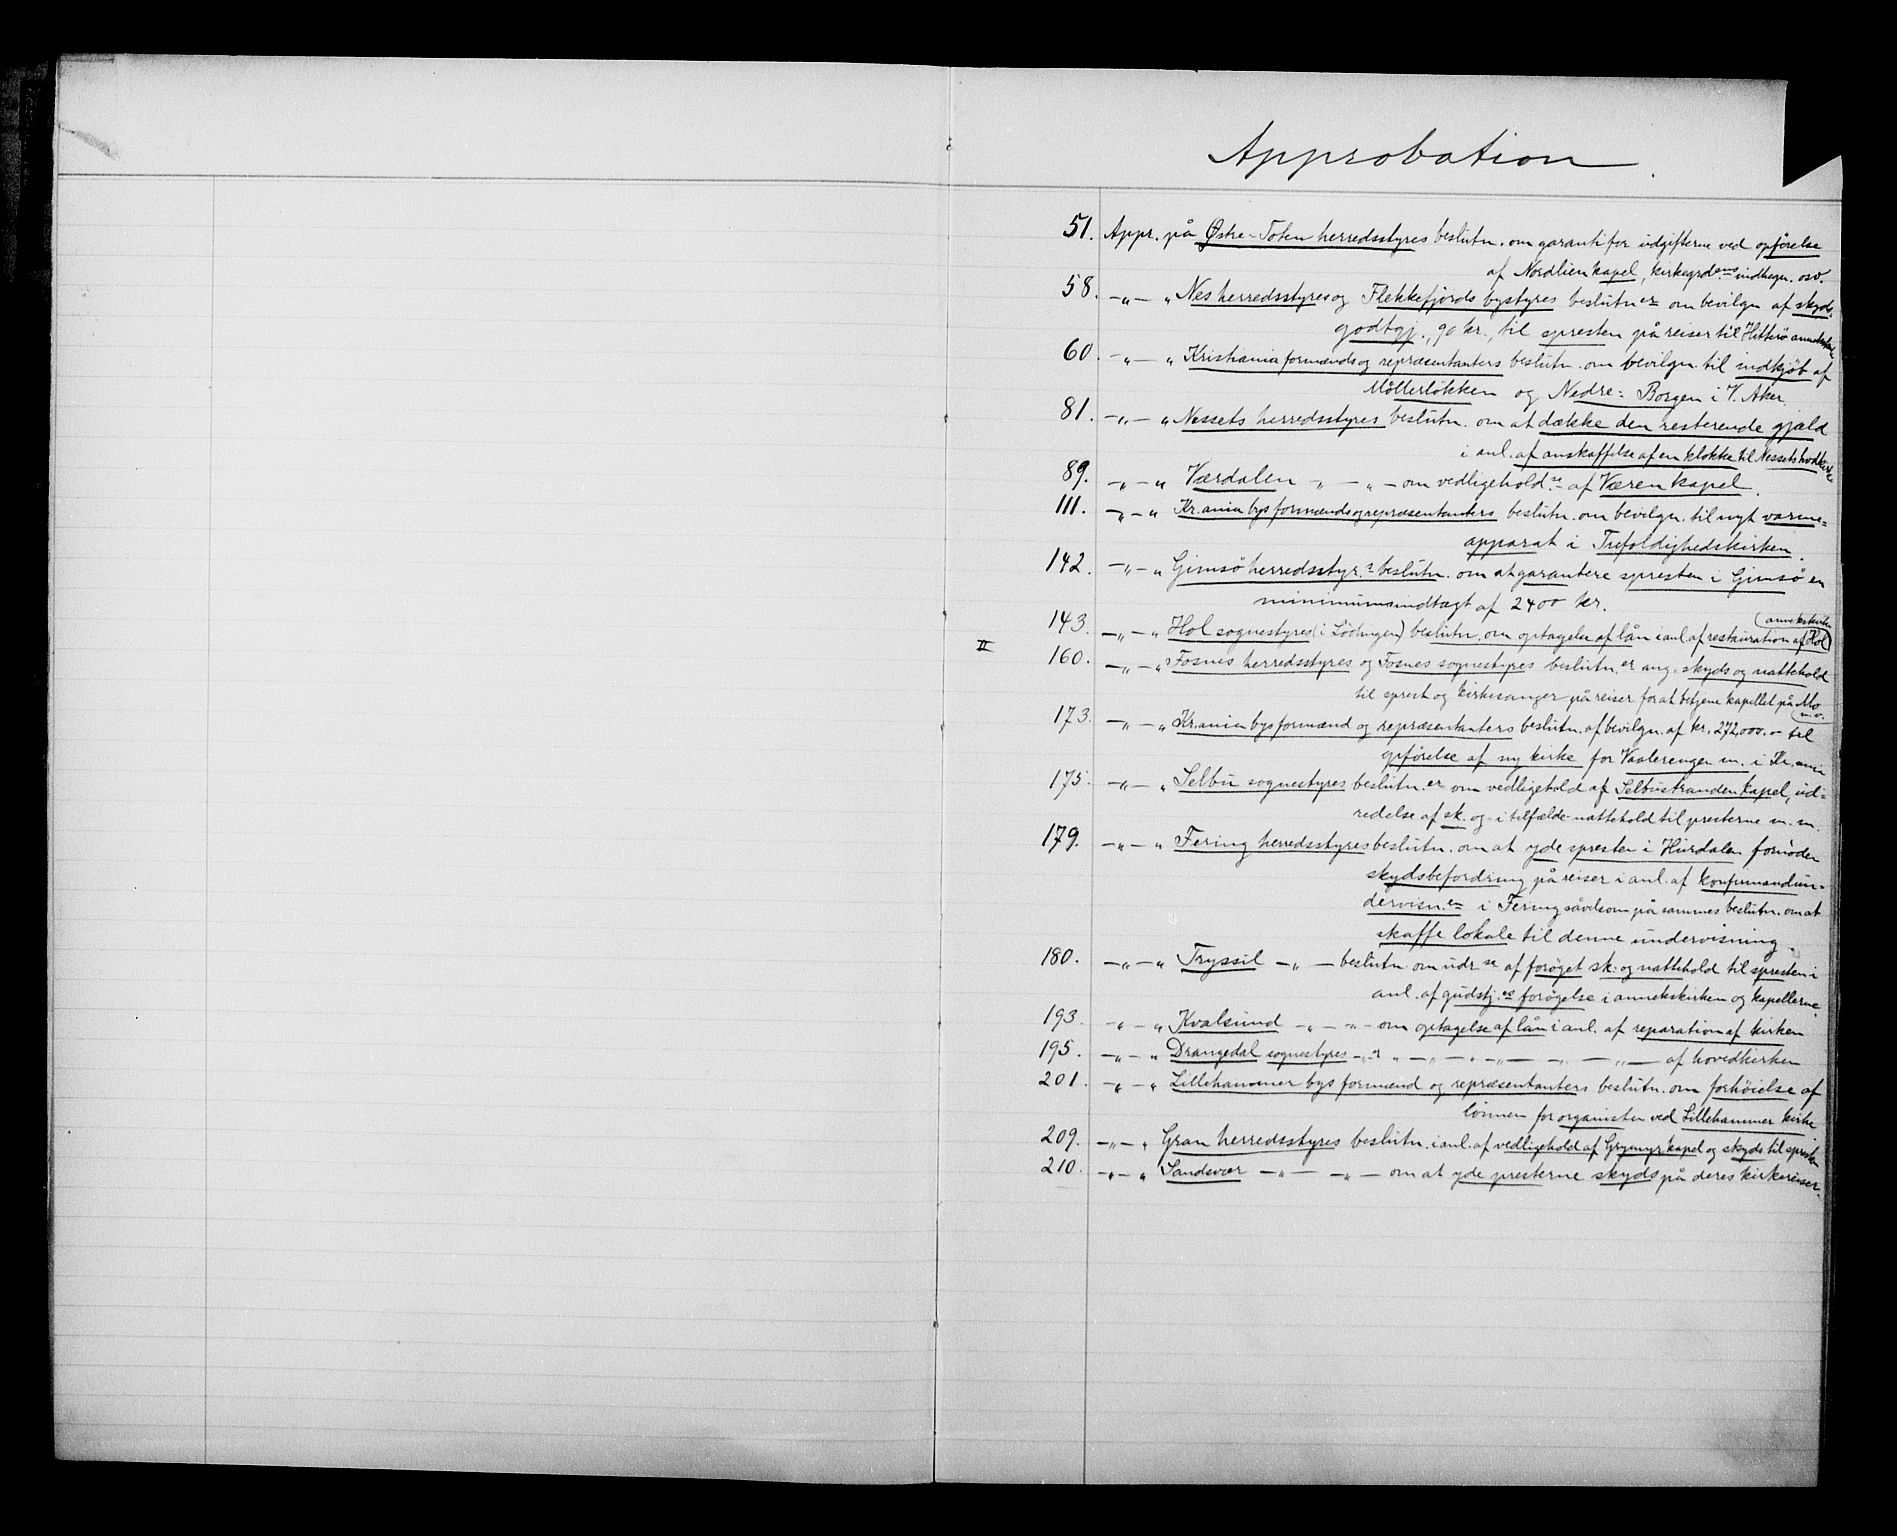 Approbation.
51. Appr. på Østre-Toten herredsstyres beslutn. om garanti for udgifterne ved opførelse
af Nordlien kapel, kirkegrdens indhegn. osv.
58. —„— „ Nes herredsstyres og Flekkefjords bystyres beslutn.er om bevilgn af skyds-
godtgj., 90 kr., til spresten på reiser til Hitterö annekskirke
60. —„— „ Kristiania formænds og repræsentanters beslutn. om bevilgn. til indkjöb af
Möllerlökken og Nedre-Borgen i V. Aker.
81. —„— „ Nessets herredsstyres beslutn. om at dække den resterende gjæld
i anl. af anskaffelse af en klokke til Nessets hvdkirke
89. —„— „ Værdalen —„— „— om vedligehold.se af Væren kapel.
111. —„— „ Kr.ania bys formænds og repræsentanters beslutn. om bevilgn. til nyt varme-
apparat i Trefoldighedskirken.
142. —„— „ Gimsö herredsstyr.s beslutn. om at garantere spresten i Gimsö en
minimumsindtægt af 2400 kr.
143. —„— „ Hol sognestyres (i Lödingen) beslutn. om optagelse af lån i anl. af restauration af Hol
annekskirke
II 160. —„— „ Fosnes herredsstyres og Fosnes sognestyres beslutn.er ang. skyds og nattehold
til sprest og kirkesanger på reiser for at betjene kapellet på Mo
m.v.
173. —„— „ Kr.ania bys formænd og repræsentanters beslutn. af bevilgn. af kr. 272,000.- til
opförelse af ny kirke for Vaalerengen m. i Kr.ania
175. —„— „ Selbu sognestyres beslutn.er om vedligehold af Selbustranden kapel, ud-
redelse af sk. og i tilfælde nattehold til presterne m. m.
179. —„— „ Fering herredsstyres beslutn. om at yde spresten i Hurdalen fornöden
skydsbefordring på reiser i anl. af konfirmandun-
dervisn.en i Fering såvelsom på sammes beslutn. om at
skaffe lokale til denne undervisning.
180. —„— „ Tryssil —„— beslutn. om udr.se af foröget sk. og nattehold til spresten i
anl. af gudstj.es forögelse i annekskirken og kapellerne.
193. —„— „ Kvalsund —„— „— om optagelse af lån i anl. af reparation af kirken
195. —„— „ Drangedal sognestyres —„— „ —„— „ —„— —„— —„— af hovedkirken
201. —„— „ Lillehammer bys formænd og repræsentanters beslutn. om forhöielse af
lönnen for organisten ved Lillehammer kirke
209. —„— „ Gran herredsstyres beslutn. i anl. af vedligehold af Grymyr kapel og skyds til spresten
210. —„— „ Sandsvær —„— —„— om at yde presterne skyds på deres kirkereiser.